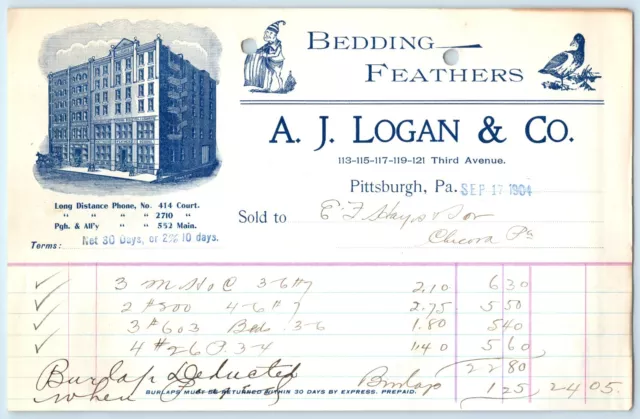 BEDDING
FEATHERS
A. J. LOGAN & CO.
113-115-117-119-121 Third Avenue.
Pittsburgh, Pa. SEP 17 1904
Long Distance Phone, No. 414 Court.
" " " " 2710 "
Pgh. & All'y " 552 Main.
Terms: Net 30 Days, or 2% 10 days.
Sold to E F Hays & Son
Chicora Pa
3 M No C 3-6 #7 2.10 6 30
2 #500 4-6 #7 2.75 5 50
3 #603 Bed 3-6 1.80 5 40
4 #26 P. 3-4 1.40 5 60
22 80
Burlap Deducted Burlap 1 25 24 05.
when
BURLAPS MUST BE RETURNED WITHIN 30 DAYS BY EXPRESS. PREPAID.